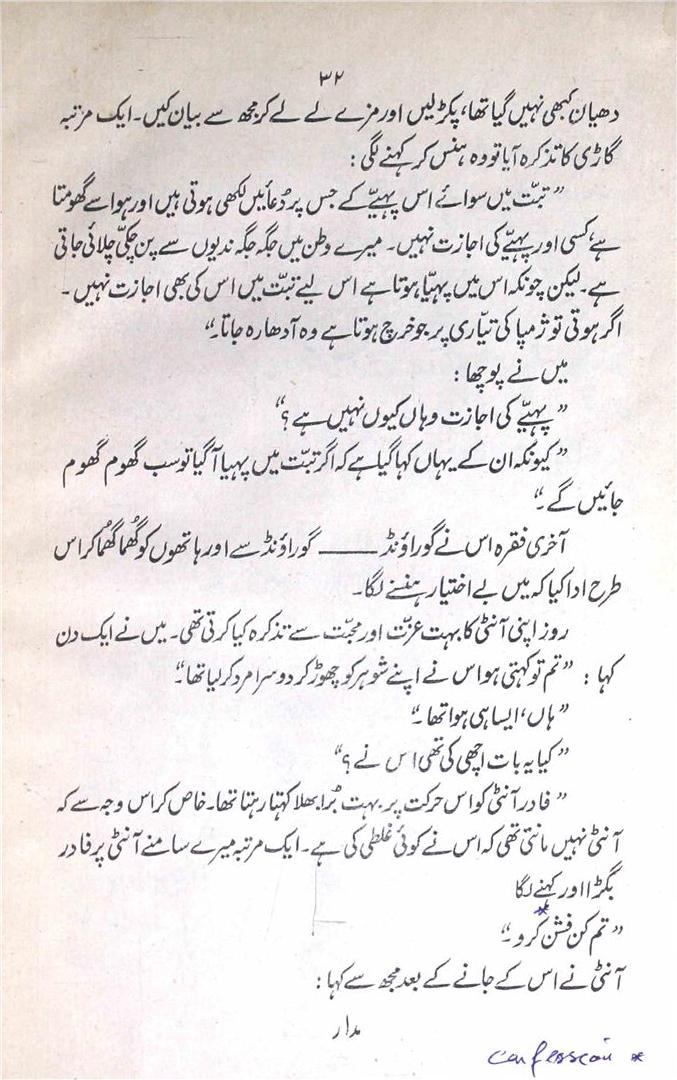 ۳۲
دھیان کبھی نہیں گیا تھا، پکڑلیں اور مزے لے لے کر مجھ سے بیان کیں۔ ایک مرتبہ
گاڑی کا تذکرہ آیا تو وہ ہنس کر کہنے لگی :
” تبّت میں سوائے اس پہیّے کے جس پر دُعائیں لکھی ہوتی ہیں اور ہوا سے گھومتا
ہے، کسی اور پہیّے کی اجازت نہیں۔ میرے وطن میں جگہ جگہ ندیوں سے پن چکّی چلائی جاتی
ہے۔ لیکن چونکہ اس میں پہیّا ہوتا ہے اس لیے تبّت میں اس کی بھی اجازت نہیں ۔
اگر ہوتی تو ژمپا کی تیّاری پر جو خرچ ہوتا ہے وہ آدھا رہ جاتا۔“
میں نے پوچھا :
” پہیّے کی اجازت وہاں کیوں نہیں ہے ؟“
” کیونکہ ان کے یہاں کہا گیا ہے کہ اگر تبّت میں پہیا آ گیا تو سب گھوم گھوم
جائیں گے ۔“
آخری فقرہ اس نے گوراؤنڈ ——— گوراؤنڈ سے اور ہاتھوں کو گھُما گھُما کر اس
طرح ادا کیا کہ میں بے اختیار ہنسنے لگا۔
روز اپنی آنٹی کا بہت عزّت اور محبّت سے تذکرہ کیا کرتی تھی۔ میں نے ایک دن
کہا : ” تم تو کہتی ہو اس نے اپنے شوہر کو چھوڑ کر دوسرا مرد کر لیا تھا۔“
” ہاں، ایسا ہی ہوا تھا ۔“
” کیا یہ بات اچھی کی تھی اس نے ؟“
” فادر آنٹی کو اس حرکت پر بہت بُرا بھلا کہتا رہتا تھا۔ خاص کر اس وجہ سے کہ
آنٹی نہیں مانتی تھی کہ اس نے کوئی غلطی کی ہے۔ ایک مرتبہ میرے سامنے آنٹی پر فادر
بگڑا اور کہنے لگا
” تم کن فشن* کرو ۔“
آنٹی نے اس کے جانے کے بعد مجھ سے کہا :
مدار
* confession